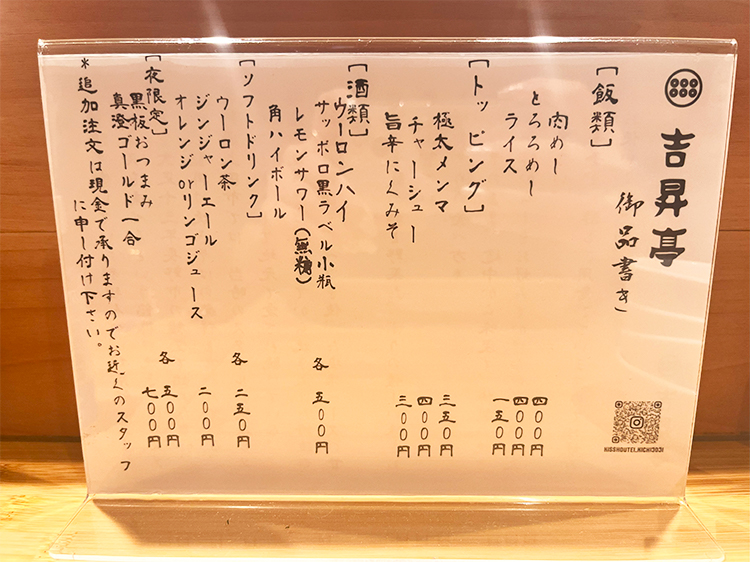 吉昇亭
御品書き
KISSHOUTEI.KICHIJOJI
[飯類]
肉めし 四〇〇円
とろろめし 四〇〇円
ライス 一五〇円
[トッピング]
極太メンマ 三五〇円
チャーシュー 四〇〇円
旨辛にくみそ 三〇〇円
[酒類]
ウーロンハイ
サッポロ黒ラベル小瓶
レモンサワー(無糖) 各 五〇〇円
角ハイボール
[ソフトドリンク]
ウーロン茶
ジンジャーエール 各 二五〇円
オレンジorリンゴジュース 二〇〇円
[夜限定]
黒板おつまみ 各 五〇〇円
真澄ゴールド一合 七〇〇円
*追加注文は現金で承りますのでお近くのスタッフ
に申し付け下さい。